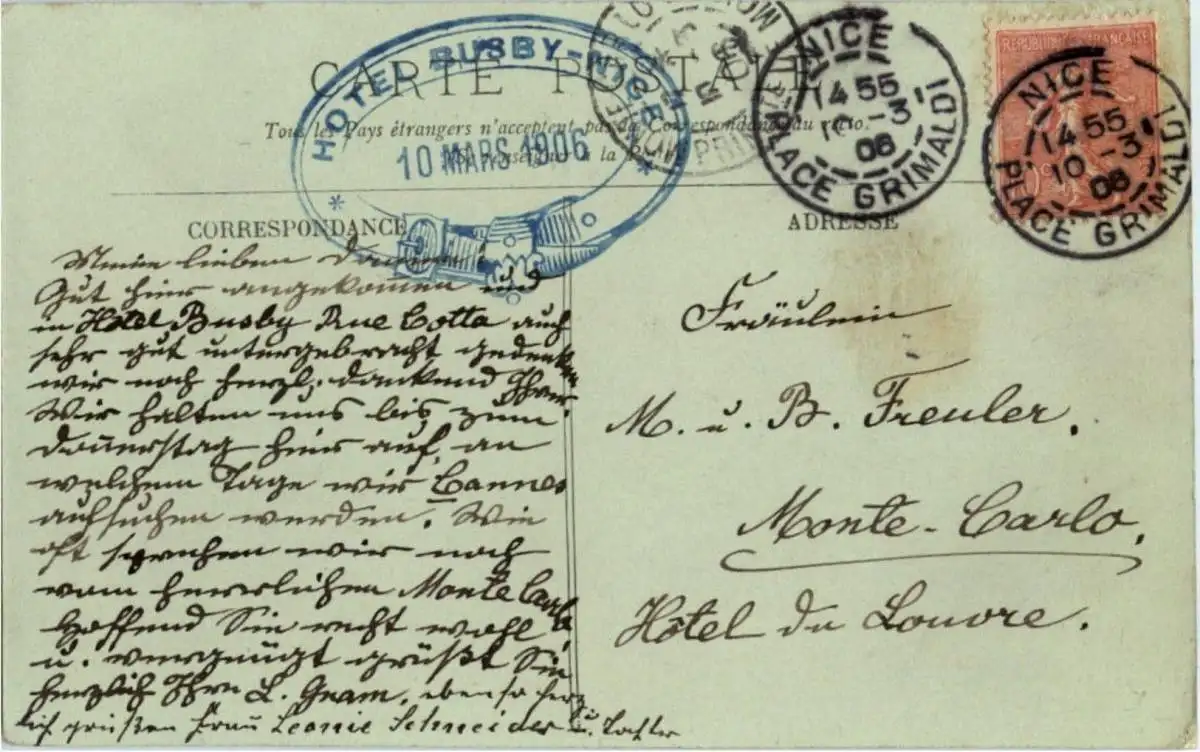 CARTE POSTALE
Tous les Pays étrangers n'acceptent pas de Correspondance au recto.
Se renseigner à la Poste
HOTEL BUSBY-NICE
10 MARS 1906
MONTE
PRINCIPAUTE
NICE
14 55
10 -3
06
PLACE GRIMALDI
NICE
14 55
10 -3
06
PLACE GRIMALDI
REPUBLIQUE FRANÇAISE
CORRESPONDANCE
Meine lieben Damen!
Gut hier angekommen und
in Hôtel Busby Rue Cotta auch
sehr gut untergebracht gedenken
wir noch herzl. dankend Ihrer.
Wir halten uns bis zum
Donnerstag hier auf, an
welchem Tage wir Cannes
aufsuchen werden. Wie
oft sprechen wir noch
vom herrlichen Monte Carlo
Hoffend Sie recht wohl
u. vergnügt grüßt Sie
herzlich Ihre L. Gram, ebenso herz-
lich grüßen Frau Leonie Schneider u. Tochter
ADRESSE
Fräulein
M. u. B. Freuler.
Monte-Carlo,
Hôtel du Louvre.